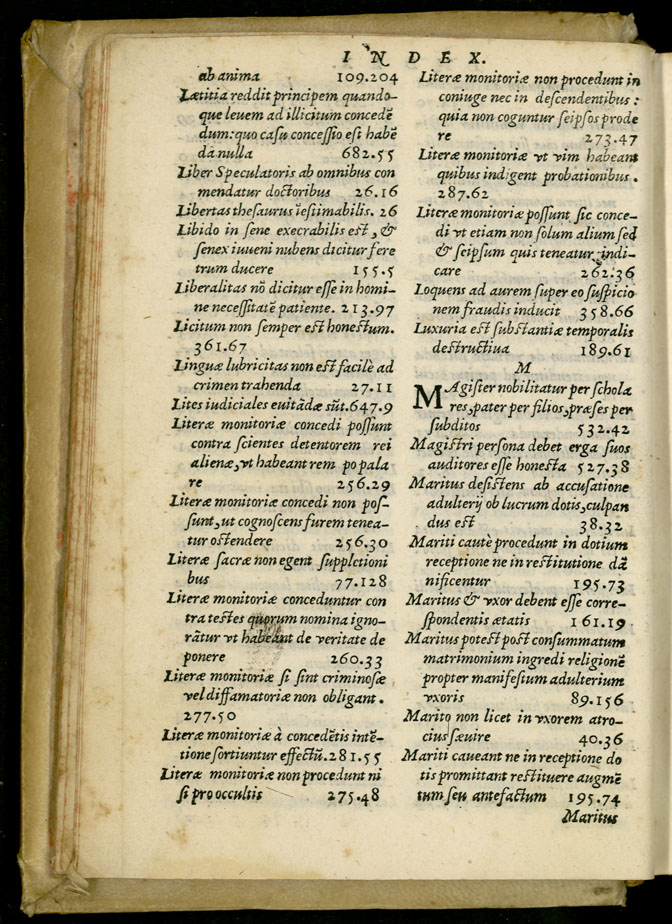 INDEX.
ab anima 109.204
Lætitia reddit principem quando-
que leuem ad illicitum concedẽ
dum: quo casu concessio est habẽ
dã nulla 682.55
Liber Speculatoris ab omnibus con
mendatur doctoribus 26.16
Libertas thesaurus iestimabilis. 26
Libido in sene execrabilis est, &
senex iuueni nubens dicitur fere
trum ducere 155.5
Liberalitas nõ dicitur esse in homi-
ne necessitatẽ patiente. 213.97
Licitum non semper est honestum.
361.67
Linguæ lubricitas non est facilè ad
crimen trahenda 27.11
Lites iudiciales euitãdæ sũt. 647.9
Literæ monitoriæ concedi possunt
contra scientes detentorem rei
alienæ, vt habeant rem po pala
re 256.29
Literæ monitoriæ concedi non pos-
sunt, ut cognoscens furem tenea-
tur ostendere 256.30
Literæ sacræ non egent suppletioni
bus 77.128
Literæ monitoriæ conceduntur con
tra testes quorum nomina igno-
rãtur vt habeant de veritate de
ponere 260.33
Literæ monitoriæ si sint criminosæ
vel diffamatoriæ non obligant.
277.50
Literæ monitoriæ à concedẽtis intẽ-
tione sortiuntur effectũ. 281.55
Literæ monitoriæ non procedunt ni
si pro occultis 275.48
Literæ monitoriæ non procedunt in
coniuge nec in descendentibus:
quia non coguntur seipsos prode
re 273.47
Literæ monitoriæ vt vim habeant
quibus indigent probationibus.
287.62
Literæ monitoriæ possunt sic conce-
di vt etiam non solum alium sed
& seipsum quis teneatur indi-
care 262.36
Loquens ad aurem super eo suspicio
nem fraudis inducit 358.66
Luxuria est substantiæ temporalis
destructiua 189.61
M
MAgister nobilitatur per schola
res, pater per filios, præses per
subditos 532.42
Magistri persona debet erga suos
auditores esse honesta 527.38
Maritus desistens ab accusatione
adulterij ob lucrum dotis, culpan
dus est 38.32
Mariti cautè procedunt in dotium
receptione ne in restitutione dã
nificentur 195.73
Maritus & vxor debent esse corre-
spondentis ætatis 161.19
Maritus potest post consummatum
matrimonium ingredi religionẽ
propter manifestum adulterium
vxoris 89.156
Marito non licet in vxorem atro-
cius sæuire 40.36
Mariti caueant ne in receptione do
tis promittant restituere augmẽ
tum seu antefactum 195.74
Maritus